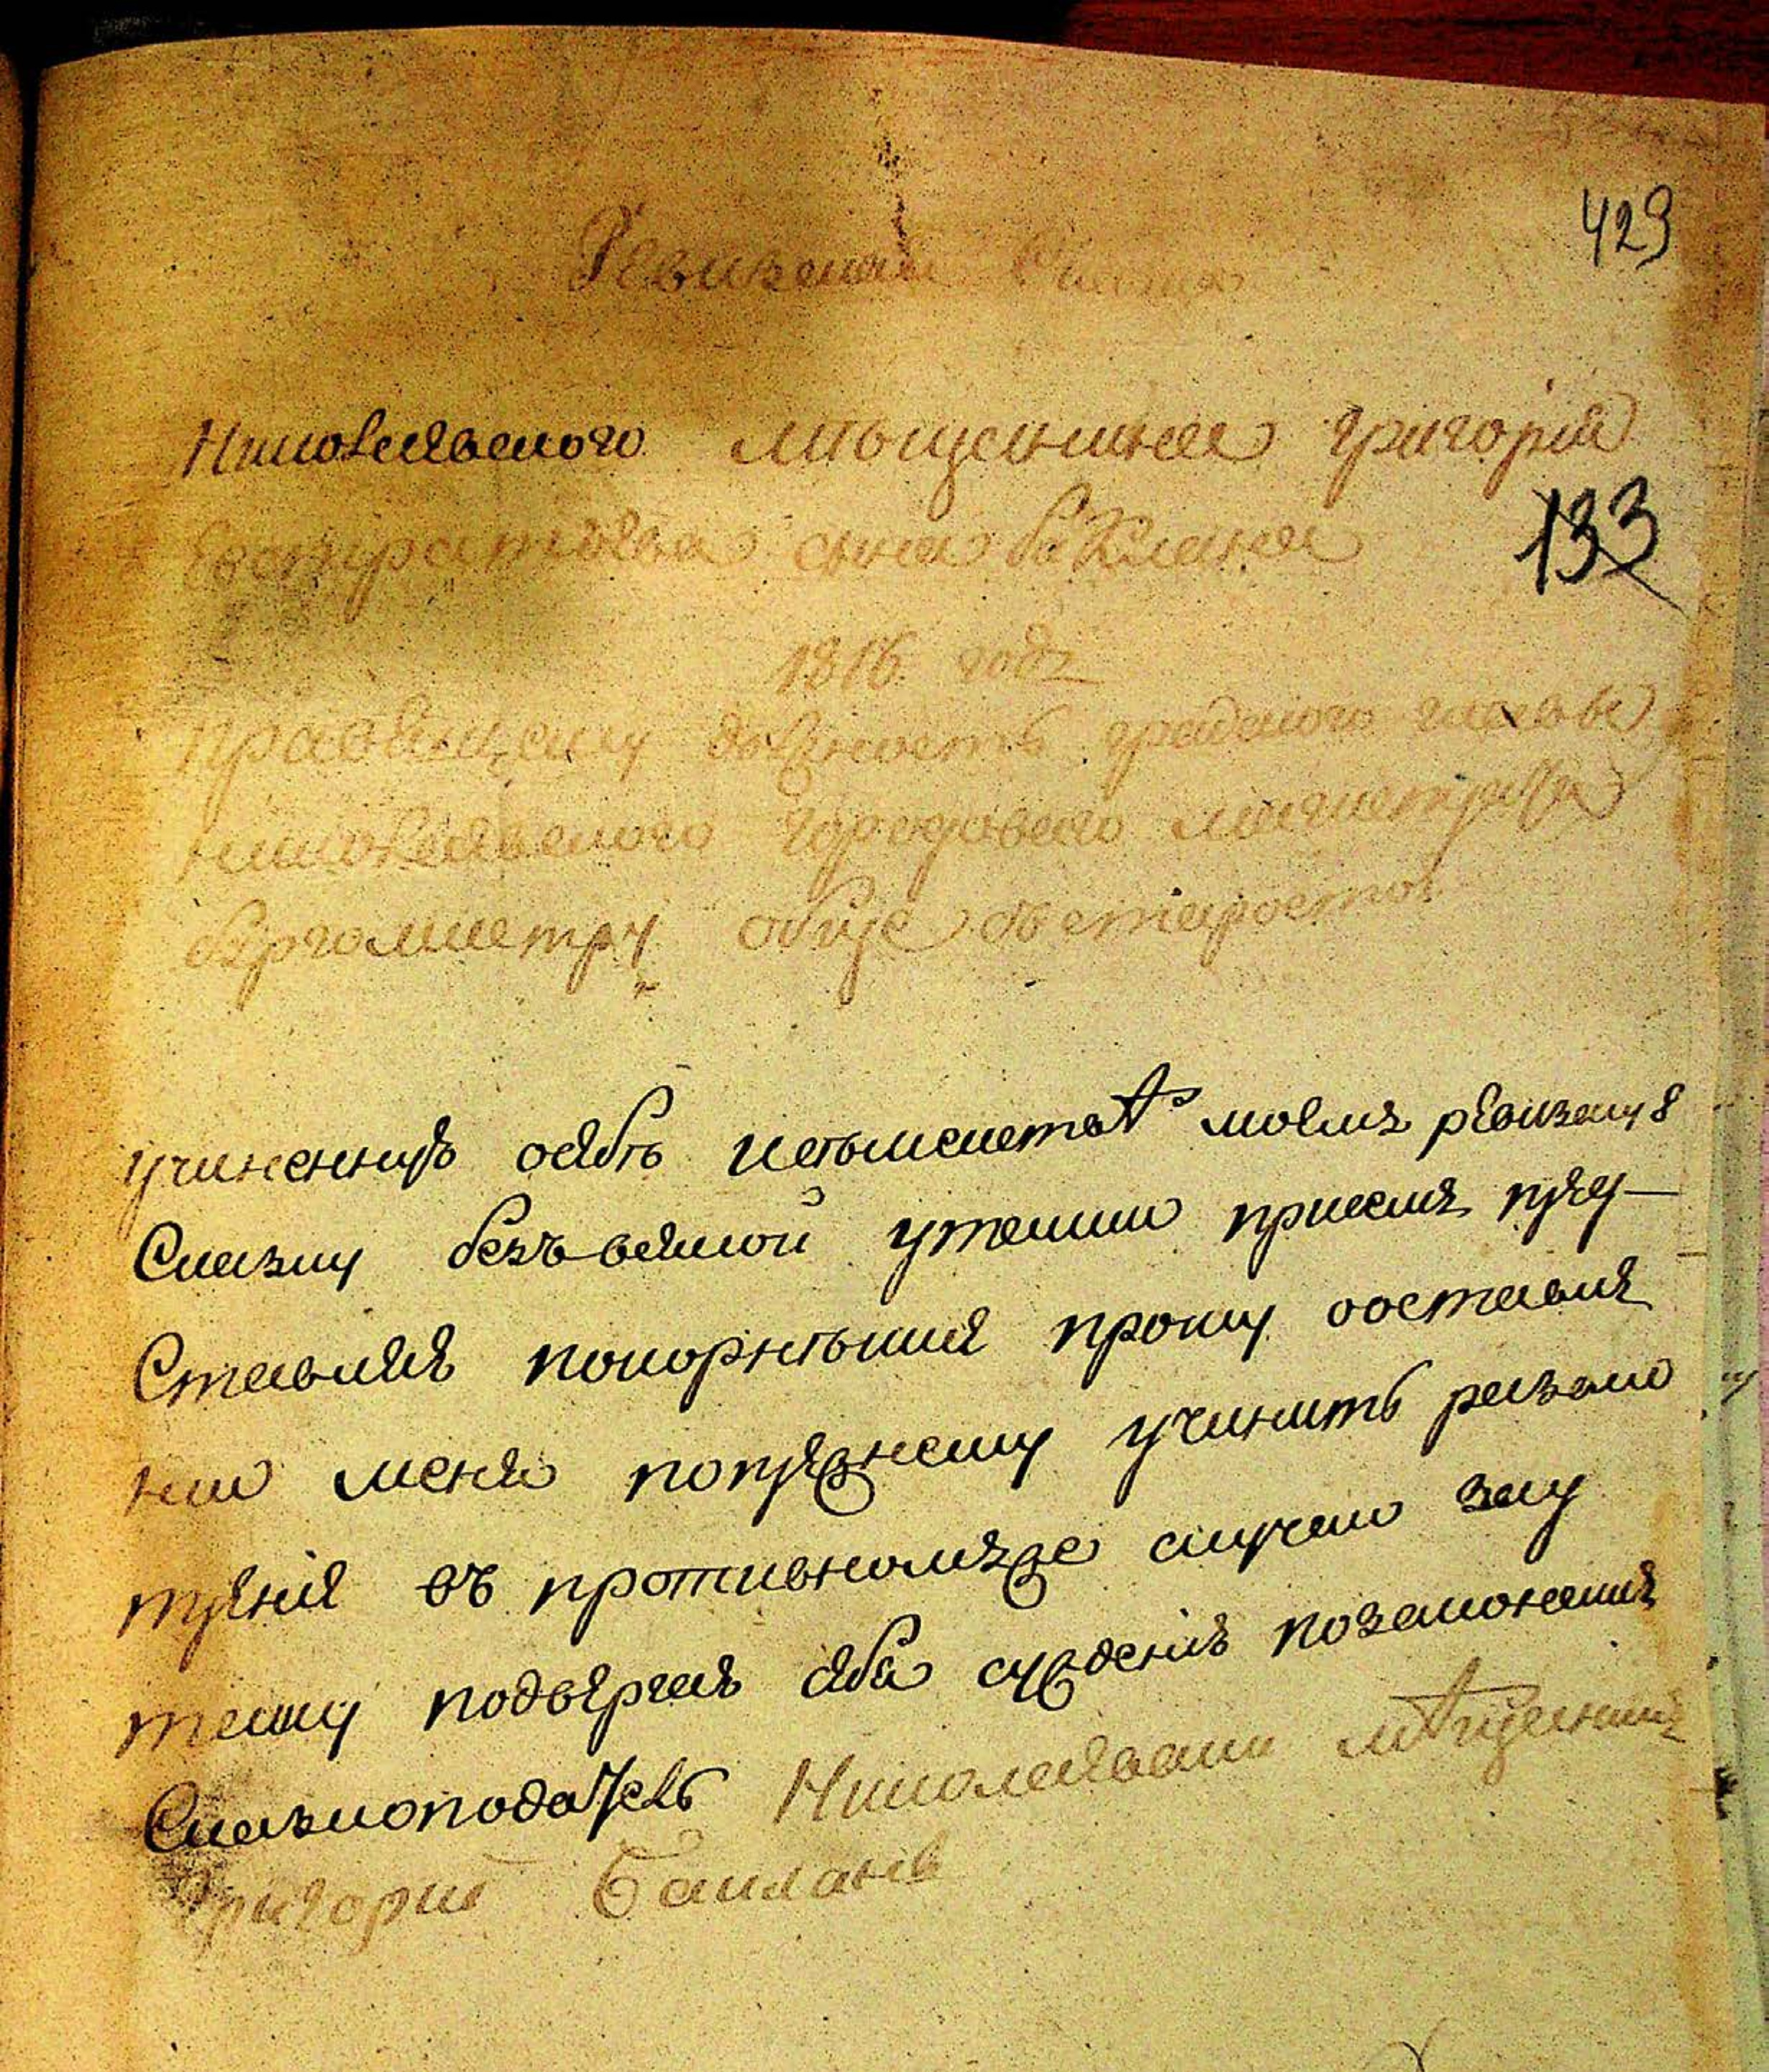 429
Ревизская Сказка
Николаевского мъщенина григория
Евстратиева сына баклана
133
1816 года
Правящему должность градского главы
николаевского городоваго магистрата
бургомистру обще въ старостою
учиненную о себѣ и съмействѣ моемъ ревизскую
Сказку безъ всякой утайки при семъ пред—
Ставляя покорнъйше прошу оставив
меня по прежнему учинить разсмо
трение въ противномъже случаю за у
тайку подвергаю себя суждению по законамъ
Сказкоподатель Николаевски мѣщенинъ
Григорий Бакланъ